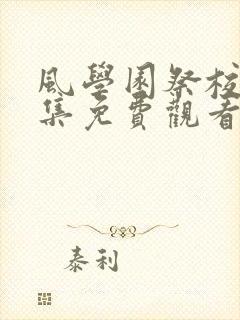 風學園祭校
集免費觀看
泰利